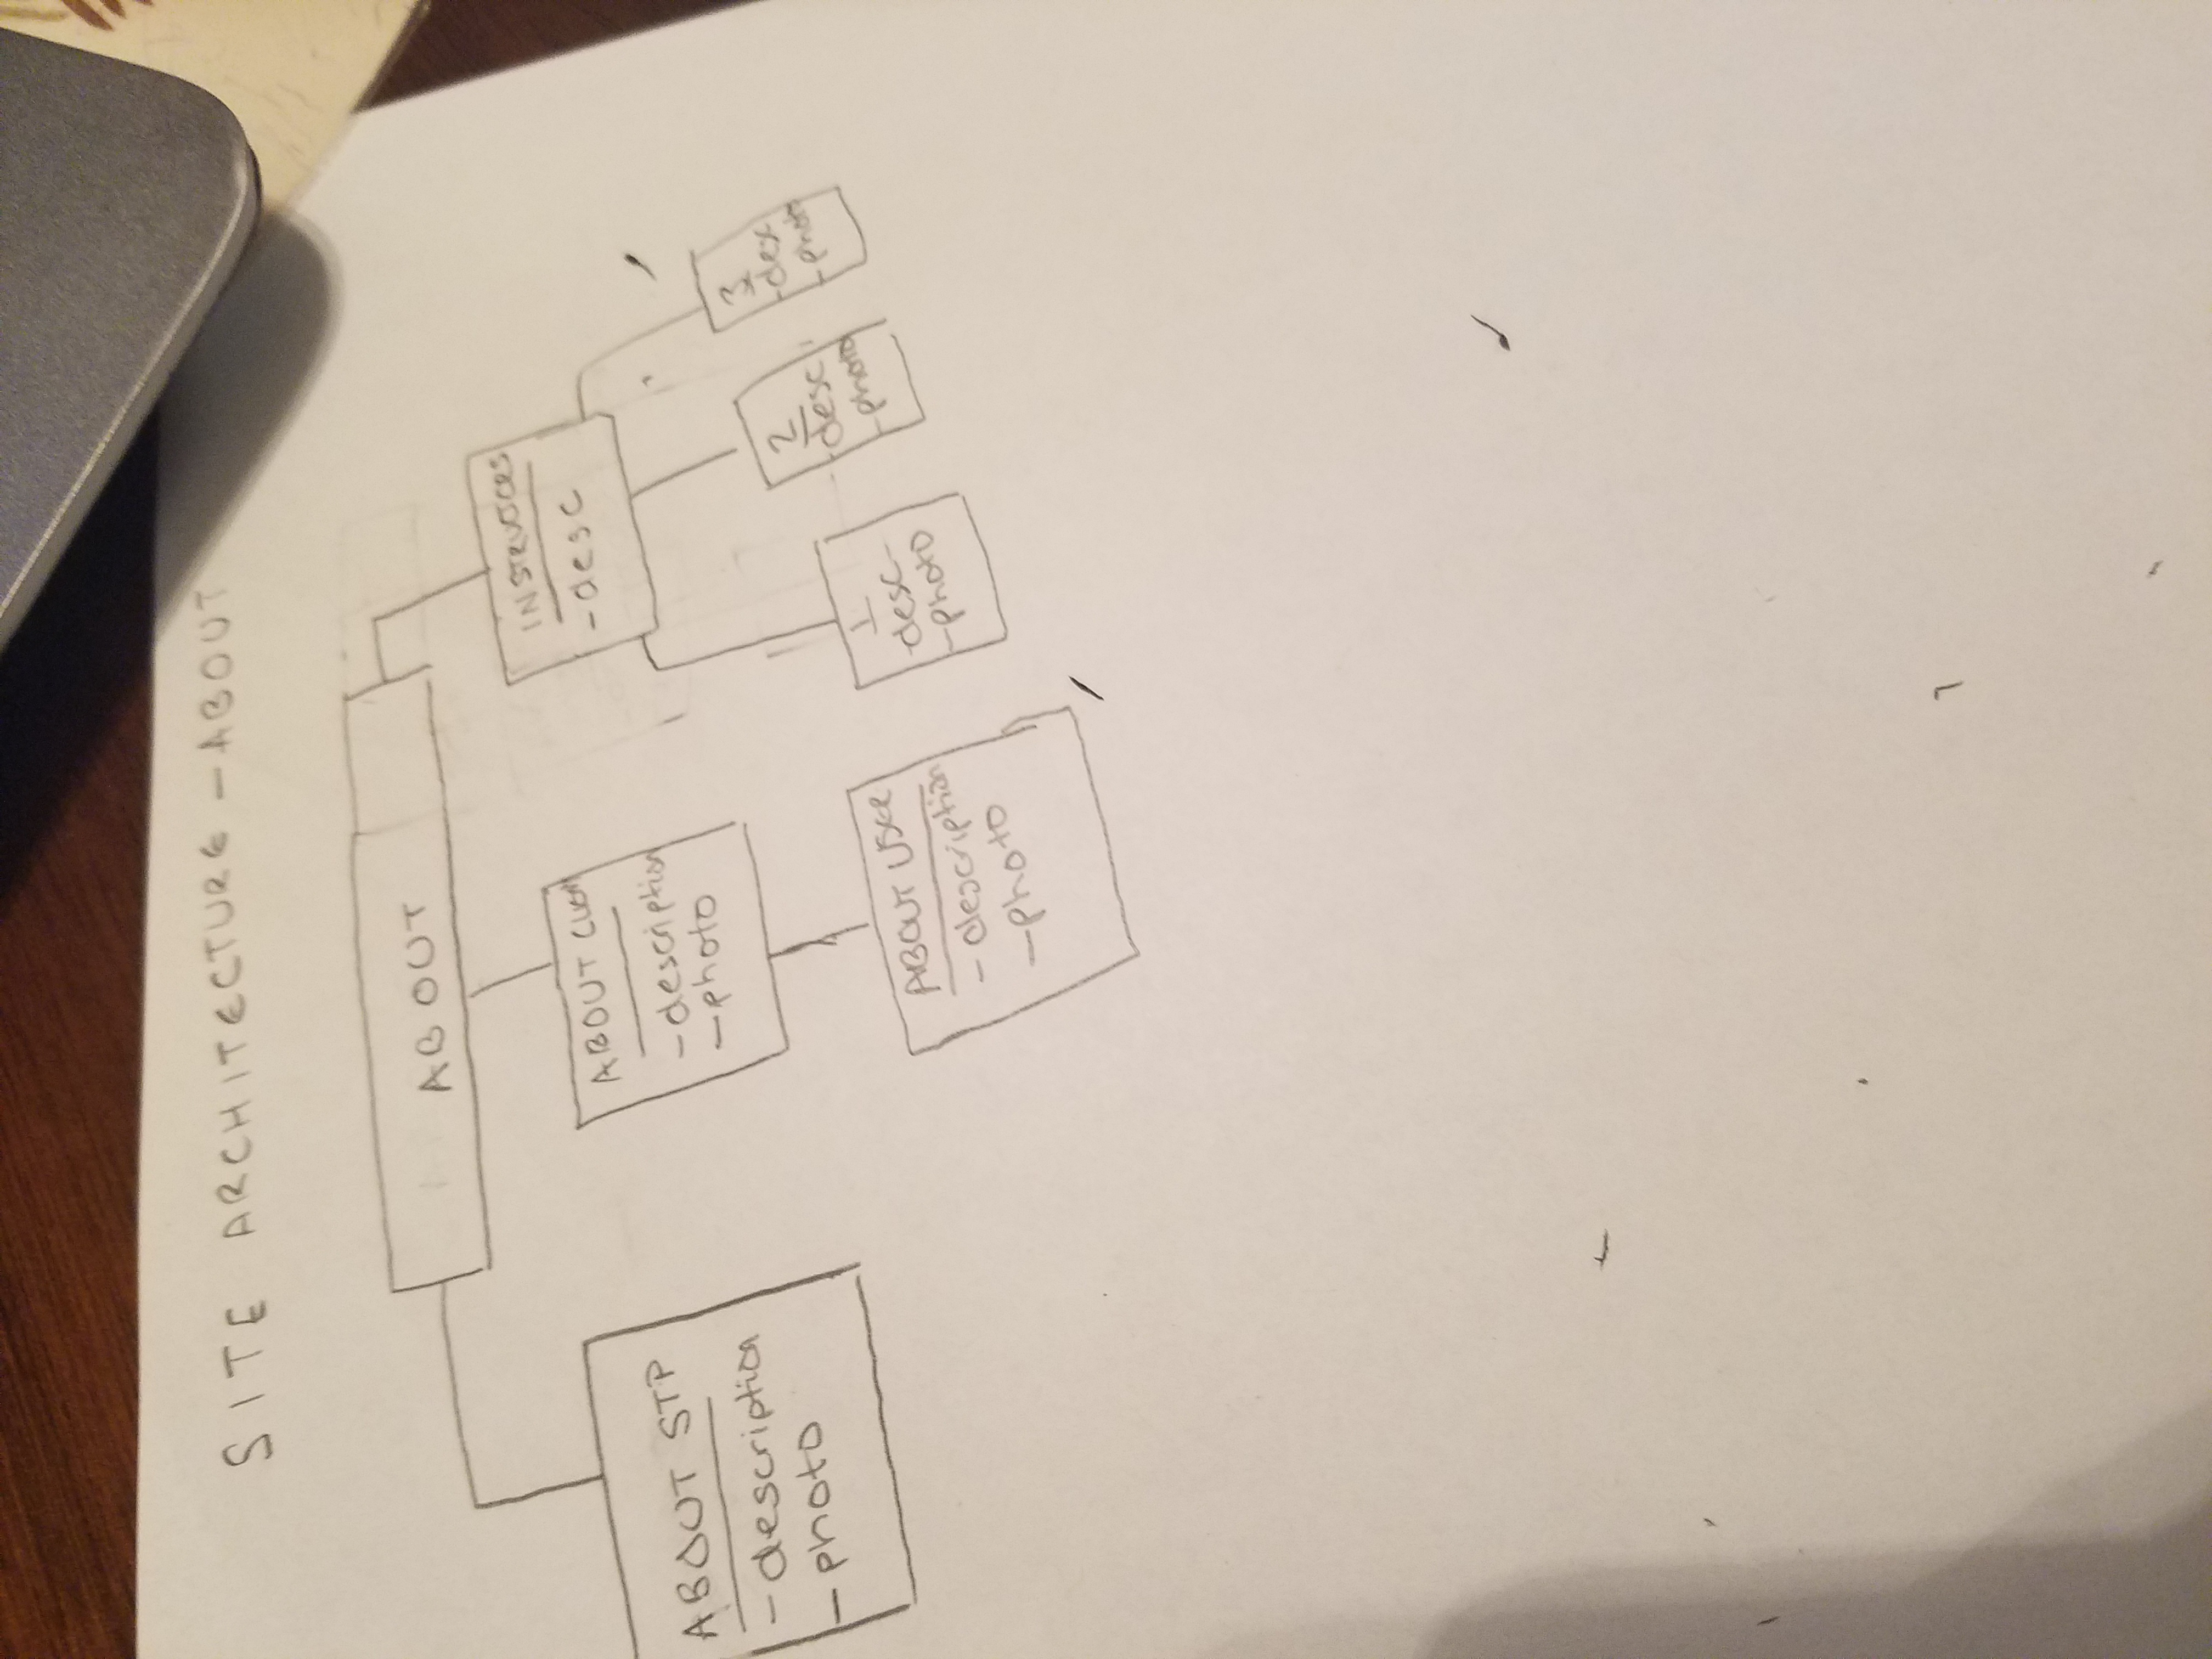 SITE ARCHITECTURE - ABOUT
ABOUT
ABOUT STP
- description
- photo
ABOUT CLIENT
- description
- photo
ABOUT USER
- description
- photo
INSTRUCTORS
- desc
1
- desc
- photo
2
- desc
- photo
3
- desc
- photo